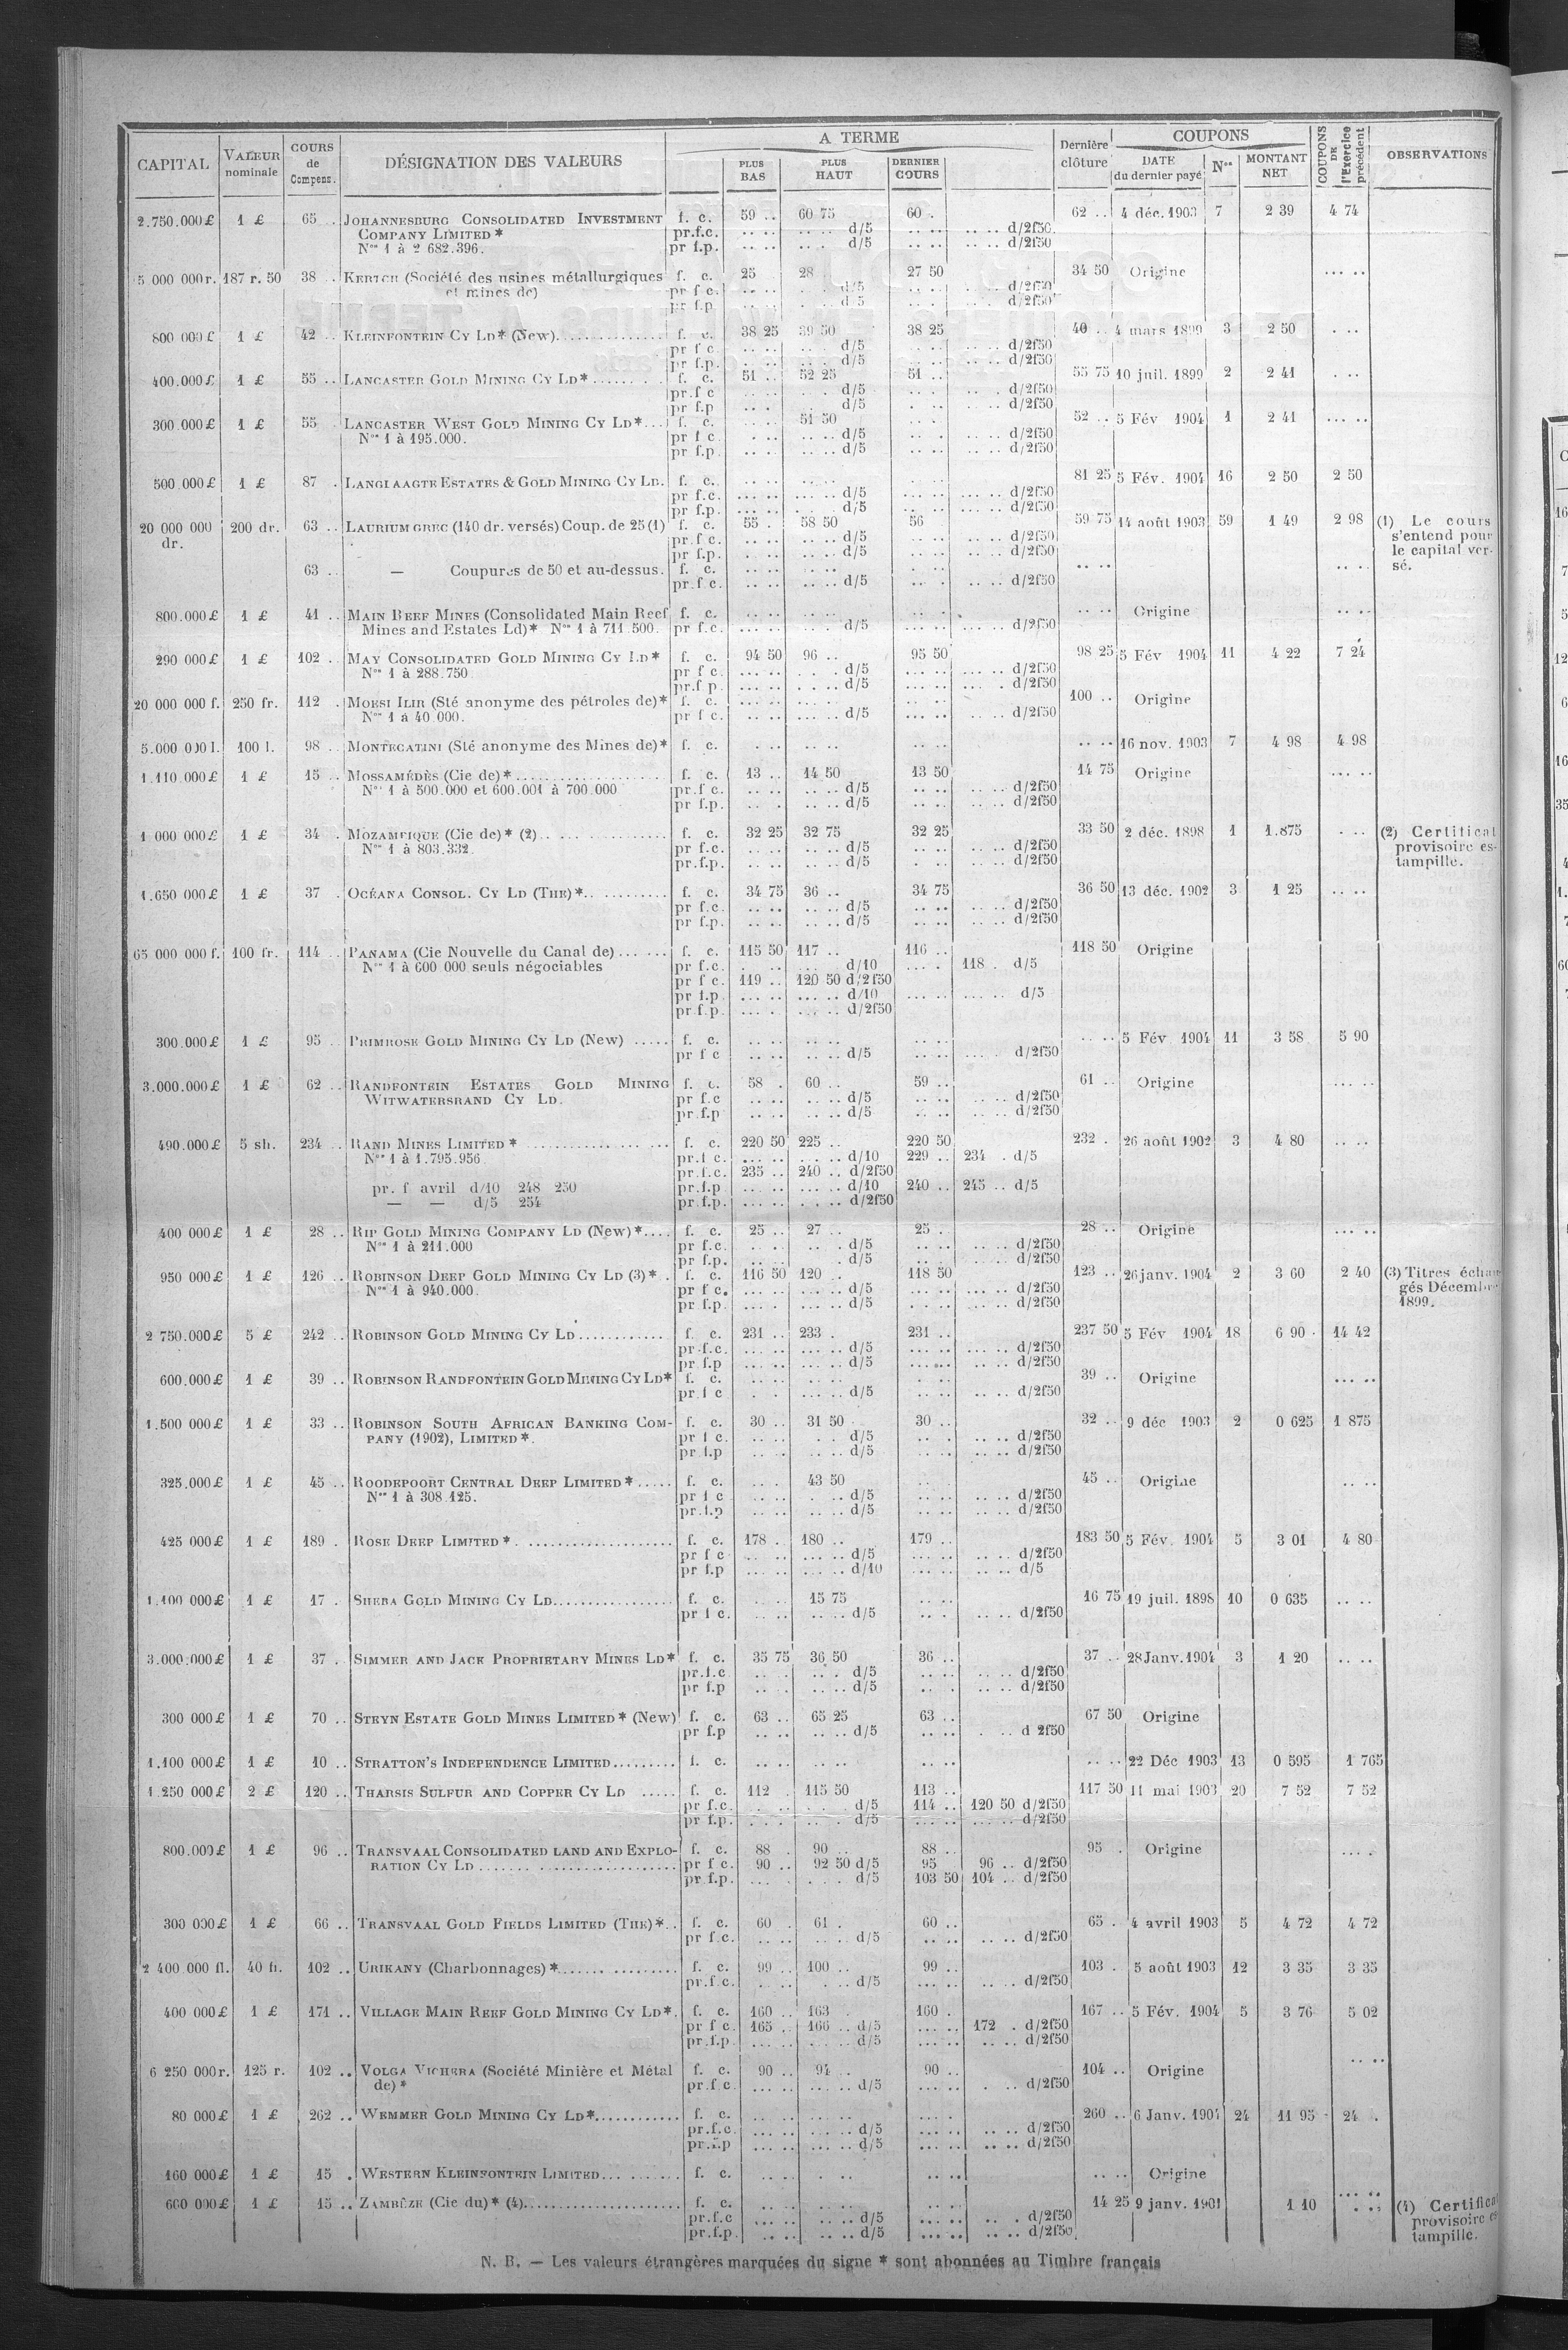 CAPITAL VALEUR nominale COURS de Compens. DÉSIGNATION DES VALEURS A TERME PLUS BAS PLUS HAUT DERNIER COURS Dernière clôture COUPONS DATE du dernier payé Nos MONTANT NET COUPONS DE l'Exercice précédent OBSERVATIONS
2.750.000£ 1 £ 65 .. JOHANNESBURG CONSOLIDATED INVESTMENT f. c. 59 .. 60 75 60 . 62 .. 4 déc. 1903 7 2 39 4 74
COMPANY LIMITED * pr.f.c. .. .. .. .. d/5 .. .. .. .. d/2f50
Nos 1 à 2 682.396. pr f.p. .. .. .. . d/5 .. .. .. .. d/2f50
5 000 000r. 187 r. 50 38 .. KERTCH (Société des usines métallurgiques f. c. 25 28 .. 27 50 34 50 Origine ... ..
et mines de) pr f c. .. .. d/5 .. . .. .. d/2f50
pr f.p. d/5 d/2f50
800 000 £ 1 £ 42 .. KLEINFONTEIN CY LD* (New).............. f. c. 38 25 39 50 38 25 40 .. 4 mars 1899 3 2 50 . ..
pr f c. .. .. d/5 d/2f50
pr f.p. .. .. d/5 d/2f50
400.000£ 1 £ 55 .. LANCASTER GOLD MINING CY LD*........ f. c. 51 .. 52 25 51 .. 55 75 10 juil. 1899 2 2 41 . ..
pr.f c d/5 d/2f50
pr f.p d/5 d/2f50
300.000£ 1 £ 55 LANCASTER WEST GOLD MINING CY LD*... f. c. 51 50 52 .. 5 Fév 1904 1 2 41 ... ..
Nos 1 à 195.000. pr f c. d/5 d/2f50
pr f.p. d/5 d/2f50
500.000£ 1 £ 87 . LANGLAAGTE ESTATES & GOLD MINING CY LD. f. c. 81 25 5 Fév. 1904 16 2 50 2 50
pr f.c. d/5 d/2f50
pr f.p. d/5 d/2f50
20 000 000 dr. 200 dr. 63 .. LAURIUM GREC (140 dr. versés) Coup. de 25 (1) f. c. 55 . 58 50 56 59 75 14 août 1903 59 1 49 2 98 (1) Le cours
pr.f c. d/5 d/2f50 s'entend pour
pr f.p. d/5 d/2f50 le capital ver-
63 .. — Coupures de 50 et au-dessus. f. c. .. .. sé.
pr.f c. d/5 d/2f50
800.000£ 1 £ 41 .. MAIN REEF MINES (Consolidated Main Reef f. c. .. .. Origine
Mines and Estates Ld)* Nos 1 à 711.500. pr f.c. d/5 d/2f50
290 000£ 1 £ 102 .. MAY CONSOLIDATED GOLD MINING CY LD* f. c. 94 50 96 .. 95 50 98 25 5 Fév 1904 11 4 22 7 24
Nos 1 à 288.750 pr f c. d/5 d/2f50
pr.f p. d/5 d/2f50
20 000 000 f. 250 fr. 112 . MOESI ILIR (Sté anonyme des pétroles de)* f. c. 100 .. Origine
Nos 1 à 40 000. pr f c. d/5 d/2f50
5.000 000 l. 100 l. 98 .. MONTECATINI (Sté anonyme des Mines de)* f. c. 16 nov. 1903 7 4 98 4 98
1.110.000£ 1 £ 15 .. MOSSAMÉDÈS (Cie de)*.................... f. c. 13 .. 14 50 13 50 14 75 Origine
Nos 1 à 500.000 et 600.001 à 700.000 pr.f c. d/5 d/2f50
pr f.p. d/5 d/2f50
1 000 000£ 1 £ 34 . MOZAMBIQUE (Cie de)* (2)................ f. c. 32 25 32 75 32 25 33 50 2 déc. 1898 1 1.875 . .. (2) Certificat
Nos 1 à 803.332. pr f.c. d/5 d/2f50 provisoire es-
pr.f.p. d/5 d/2f50 tampillé.
1.650 000£ 1 £ 37 . OCÉANA CONSOL. CY LD (THE)*........... f. c. 34 75 36 .. 34 75 36 50 13 déc. 1902 3 1 25
pr f.c. d/5 d/2f50
pr f.p. d/5 d/2f50
65 000 000 f. 100 fr. 114 .. PANAMA (Cie Nouvelle du Canal de)....... f. c. 115 50 117 .. 116 .. 118 50 Origine
Nos 1 à 600 000 seuls négociables pr f.c. d/10 118 . d/5
pr f c. 119 .. 120 50 d/2f50
pr f.p d/10 d/5
pr f.p. d/2f50
300.000£ 1 £ 95 .. PRIMROSE GOLD MINING CY LD (New) ..... f. c. 5 Fév 1904 11 3 58 5 90
pr f c d/5 d/2f50
3.000.000£ 1 £ 62 .. RANDFONTEIN ESTATES GOLD MINING f. c. 58 . 60 .. 59 .. 61 .. Origine
WITWATERSRAND CY LD. pr f.c d/5 d/2f50
pr.f.p d/5 d/2f50
490.000£ 5 sh. 234 .. RAND MINES LIMITED * .................. f. c. 220 50 225 .. 220 50 232 . 26 août 1902 3 4 80
Nos 1 à 1.795.956 pr.f c. d/10 229 .. 234 . d/5
pr.f.c. 235 .. 240 .. d/2f50
pr. f avril d/10 248 250 pr.f.p d/10 240 .. 245 .. d/5
— — d/5 254 pr.f.p. d/2f50
400 000£ 1 £ 28 .. RIP GOLD MINING COMPANY LD (New)*.... f. c. 25 .. 27 .. 25 .. 28 .. Origine
Nos 1 à 211.000 pr f.c. d/5 d/2f50
pr f.p. d/5 d/2f50
950 000£ 1 £ 126 .. ROBINSON DEEP GOLD MINING CY LD (3)*. f. c. 116 50 120 .. 118 50 123 .. 26 janv. 1904 2 3 60 2 40 (3) Titres échan
Nos 1 à 940.000. pr f c. d/5 d/2f50 gés Décembre
pr f.p. d/5 d/2f50 1899.
2 750.000£ 5 £ 242 .. ROBINSON GOLD MINING CY LD............ f. c. 231 .. 233 . 231 .. 237 50 5 Fév 1904 18 6 90 14 42
pr.f.c. d/5 d/2f50
pr f.p d/5 d/2f50
600.000£ 1 £ 39 .. ROBINSON RANDFONTEIN GOLD MINING CY LD* f. c. 39 .. Origine
pr.f c d/5 d/2f50
1.500 000£ 1 £ 33 .. ROBINSON SOUTH AFRICAN BANKING COM- f. c. 30 .. 31 50 30 .. 32 .. 9 déc 1903 2 0 625 1 875
PANY (1902), LIMITED *. pr f c. d/5 d/2f50
pr f.p d/5 d/2f50
325.000£ 1 £ 45 .. ROODEPOORT CENTRAL DEEP LIMITED *..... f. c. 43 50 45 .. Origine
Nos 1 à 308.125. pr f c d/5 d/2f50
pr.f.p d/5 d/2f50
425 000£ 1 £ 189 . ROSE DEEP LIMITED *. .................... f. c. 178 . 180 .. 179 .. 183 50 5 Fév. 1904 5 3 01 4 80
pr f c d/5 d/2f50
pr f.p d/10 d/5
1.100 000£ 1 £ 17 . SHEBA GOLD MINING CY LD................. f. c. 15 75 16 75 19 juil. 1898 10 0 635
pr f c. d/5 d/2f50
3.000.000£ 1 £ 37 . SIMMER AND JACK PROPRIETARY MINES LD* f. c. 35 75 36 50 36 .. 37 .. 28 Janv. 1904 3 1 20
pr.f.c d/5 d/2f50
pr f.p d/5 d/2f50
300 000£ 1 £ 70 .. STEYN ESTATE GOLD MINES LIMITED * (New) f. c. 63 .. 65 25 63 .. 67 50 Origine
pr f.p d/5 d 2f50
1.100 000£ 1 £ 10 .. STRATTON'S INDEPENDENCE LIMITED......... f. c. 22 Déc 1903 13 0 595 1 765
1 250 000£ 2 £ 120 .. THARSIS SULFUR AND COPPER CY LD ..... f. c. 112 . 115 50 113 .. 117 50 11 mai 1903 20 7 52 7 52
pr f.c. d/5 114 .. 120 50 d/2f50
pr f.p. d/5 d/2f50
800.000£ 1 £ 96 .. TRANSVAAL CONSOLIDATED LAND AND EXPLO- f. c. 88 . 90 .. 88 .. 95 . Origine
RATION CY LD ........................... pr f c. 90 .. 92 50 d/5 95 96 .. d/2f50
pr f.p. d/5 103 50 104 .. d/2f50
300 000£ 1 £ 66 .. TRANSVAAL GOLD FIELDS LIMITED (THE)*.. f. c. 60 . 61 . 60 .. 65 . 4 avril 1903 5 4 72 4 72
pr f.c. d/5 d/2f50
2 400 000 fl. 40 fl. 102 .. URIKANY (Charbonnages) *................. f. c. 99 .. 100 .. 99 .. 103 . 5 août 1903 12 3 35 3 35
pr.f.c. d/5 d/2f50
400 000£ 1 £ 171 .. VILLAGE MAIN REEF GOLD MINING CY LD*. f. c. 160 .. 163 . 160 . 167 .. 5 Fév. 1904 5 3 76 5 02
pr f c. 165 .. 166 .. d/5 172 . d/2f50
pr.f.p d/5 d/2f50
6 250 000r. 125 r. 102 .. VOLGA VICHERA (Société Minière et Métal f. c. 90 .. 94 .. 90 .. 104 .. Origine
de) * pr.f c. d/5 d/2f50
80 000£ 1 £ 262 .. WEMMER GOLD MINING CY LD*............ f. c. 260 .. 6 Janv. 1904 24 11 95 24 .
pr.f.c. d/5 d/2f50
pr.f.p d/5 d/2f50
160 000£ 1 £ 15 . WESTERN KLEINFONTEIN LIMITED......... f. c. Origine
600 000£ 1 £ 15 .. ZAMBÈZE (Cie du)* (4)..................... f. c. 14 25 9 janv. 1901 1 10 (4) Certificat
pr.f.c d/5 d/2f50 provisoire es
pr.f.p. d/5 d/2f50 tampillé.
N. B. — Les valeurs étrangères marquées du signe * sont abonnées au Timbre français